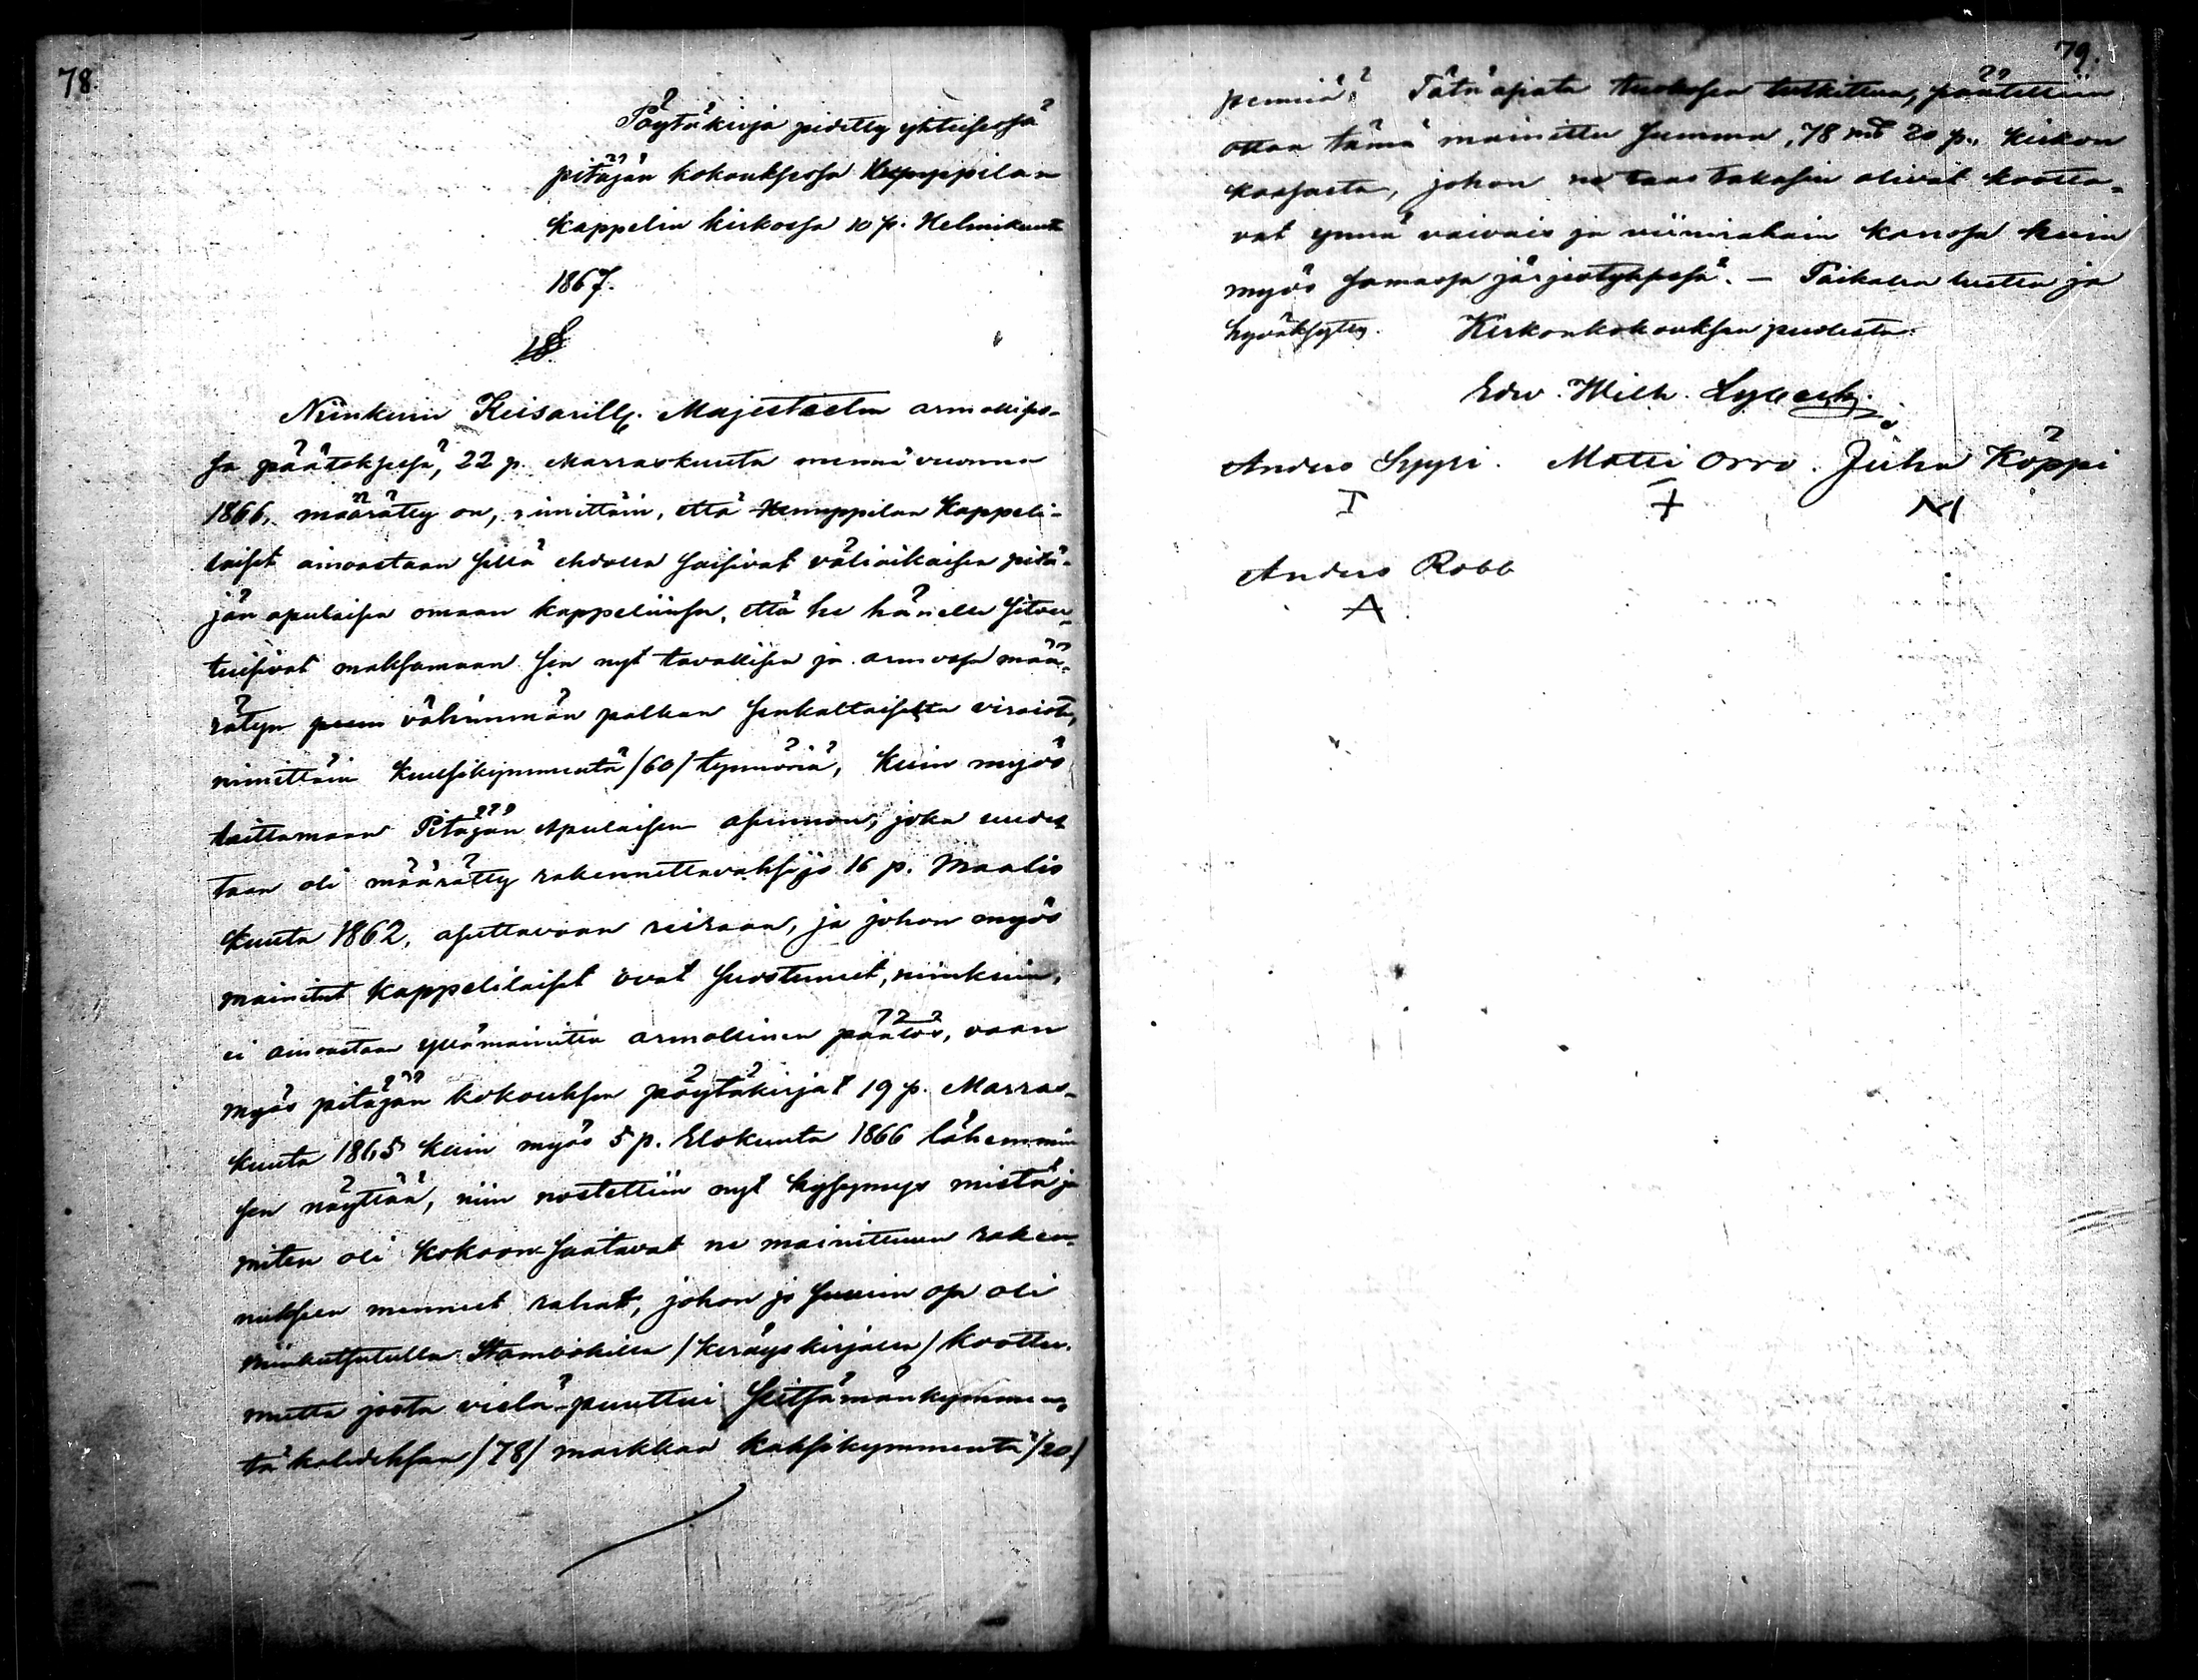 78.
Pöytäkirja pidetty yhteisessä
pitäjän kokouksessa Kemppilan
Kappelin kirkossa 10 p. Helmikuuta
1867.
1 §
Niinkuin Keisarill. Majesteetin armollises-
sa päätöksessä, 22 p. Marraskuuta mennä vuonna
1866, määrätty on, nimittäin, että Kemppilan Kappeli-
laiset ainoastaan sillä ehdolla saisivat väliaikaisen pitä-
jän apulaisen omaan kappeliinsa, että he hänelle sitou-
tuisivat maksamaan sen nyt tavallisen ja armossa mää-
rätyn vähimmän palkan senkaltaisesta virasta,
nimittäin Kuusikymmentä /60/ tynnöriä, kuin myös
laittamaan Pitäjän Apulaisen asunnon, joka uudes
taan oli määrätty rakennettavaksi jo 16 p. Maalis
kuuta 1862, asuttavaan, ja johon myös
mainitut Kappelilaiset ovat suostuneet, niinkuin,
ei ainoastaan yllämainittu armollinen päätös, vaan
myös pitäjän kokouksen pöytäkirjat 19 p. Marras-
kuuta 1865 kuin myös 5 p. Elokuuta 1866 lähemmin
sen näyttää, niin nostettiin nyt kysymys mistä ja
miten oli kokoon saatavat ne mainittuun raken-
nukseen menneet rahat, johon jo suurin osa oli
niinkutsutulla Stambokilla /keräyskirjalla/ koottu,
mutta josta vielä puuttui seitsämänkymmen-
tä kahdeksan /78/ markkaa kaksikymmentä /20/
79.
penniä? Tätä asiata tutkittua, päätettiin
ottaa tämä mainittu summa, 78 mk 20 p., kirkon
kassasta, johon ne taas takasin olivat kootta-
vat ynnä vaivais ja viinirahain kanssa kuin
myös samassa järjestyksessä. – Paikalla luettu ja
hyväksytty. Kirkonkokouksen puolesta:
Edv. Wilh.
Anders Seppi. Matti Orro. Juha Köppi
I + M
Anders Robb
A